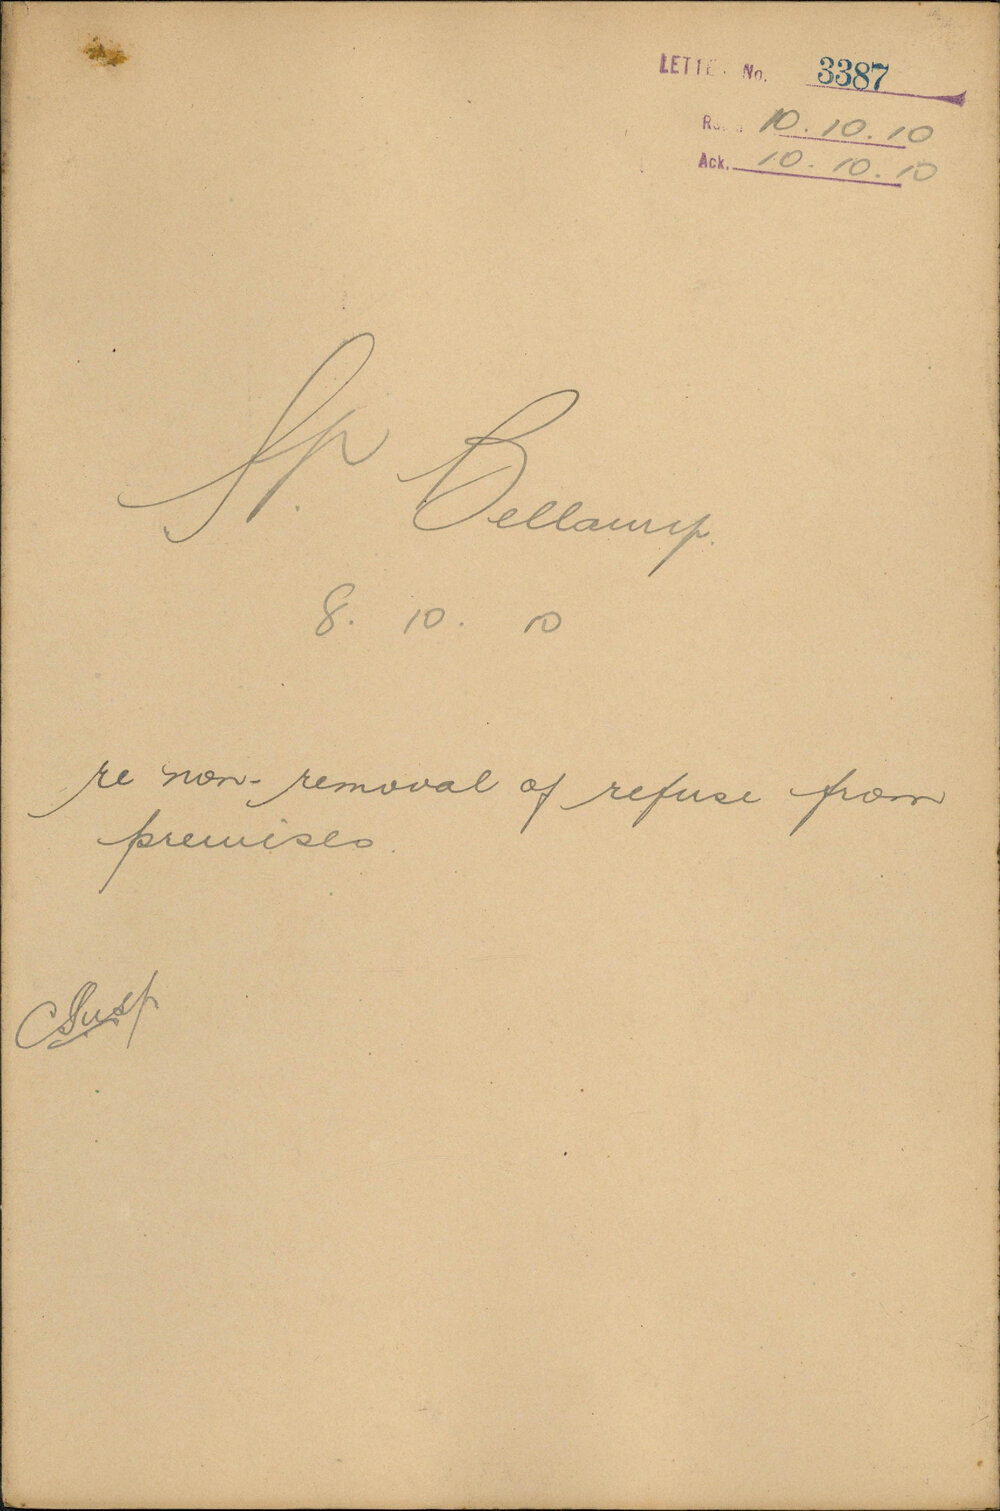 LETTE No. 3387
R 10.10.10
Ack. 10.10.10
Bellamy.
8. 10. 10
re non-removal of refuse from
premises.
Insp